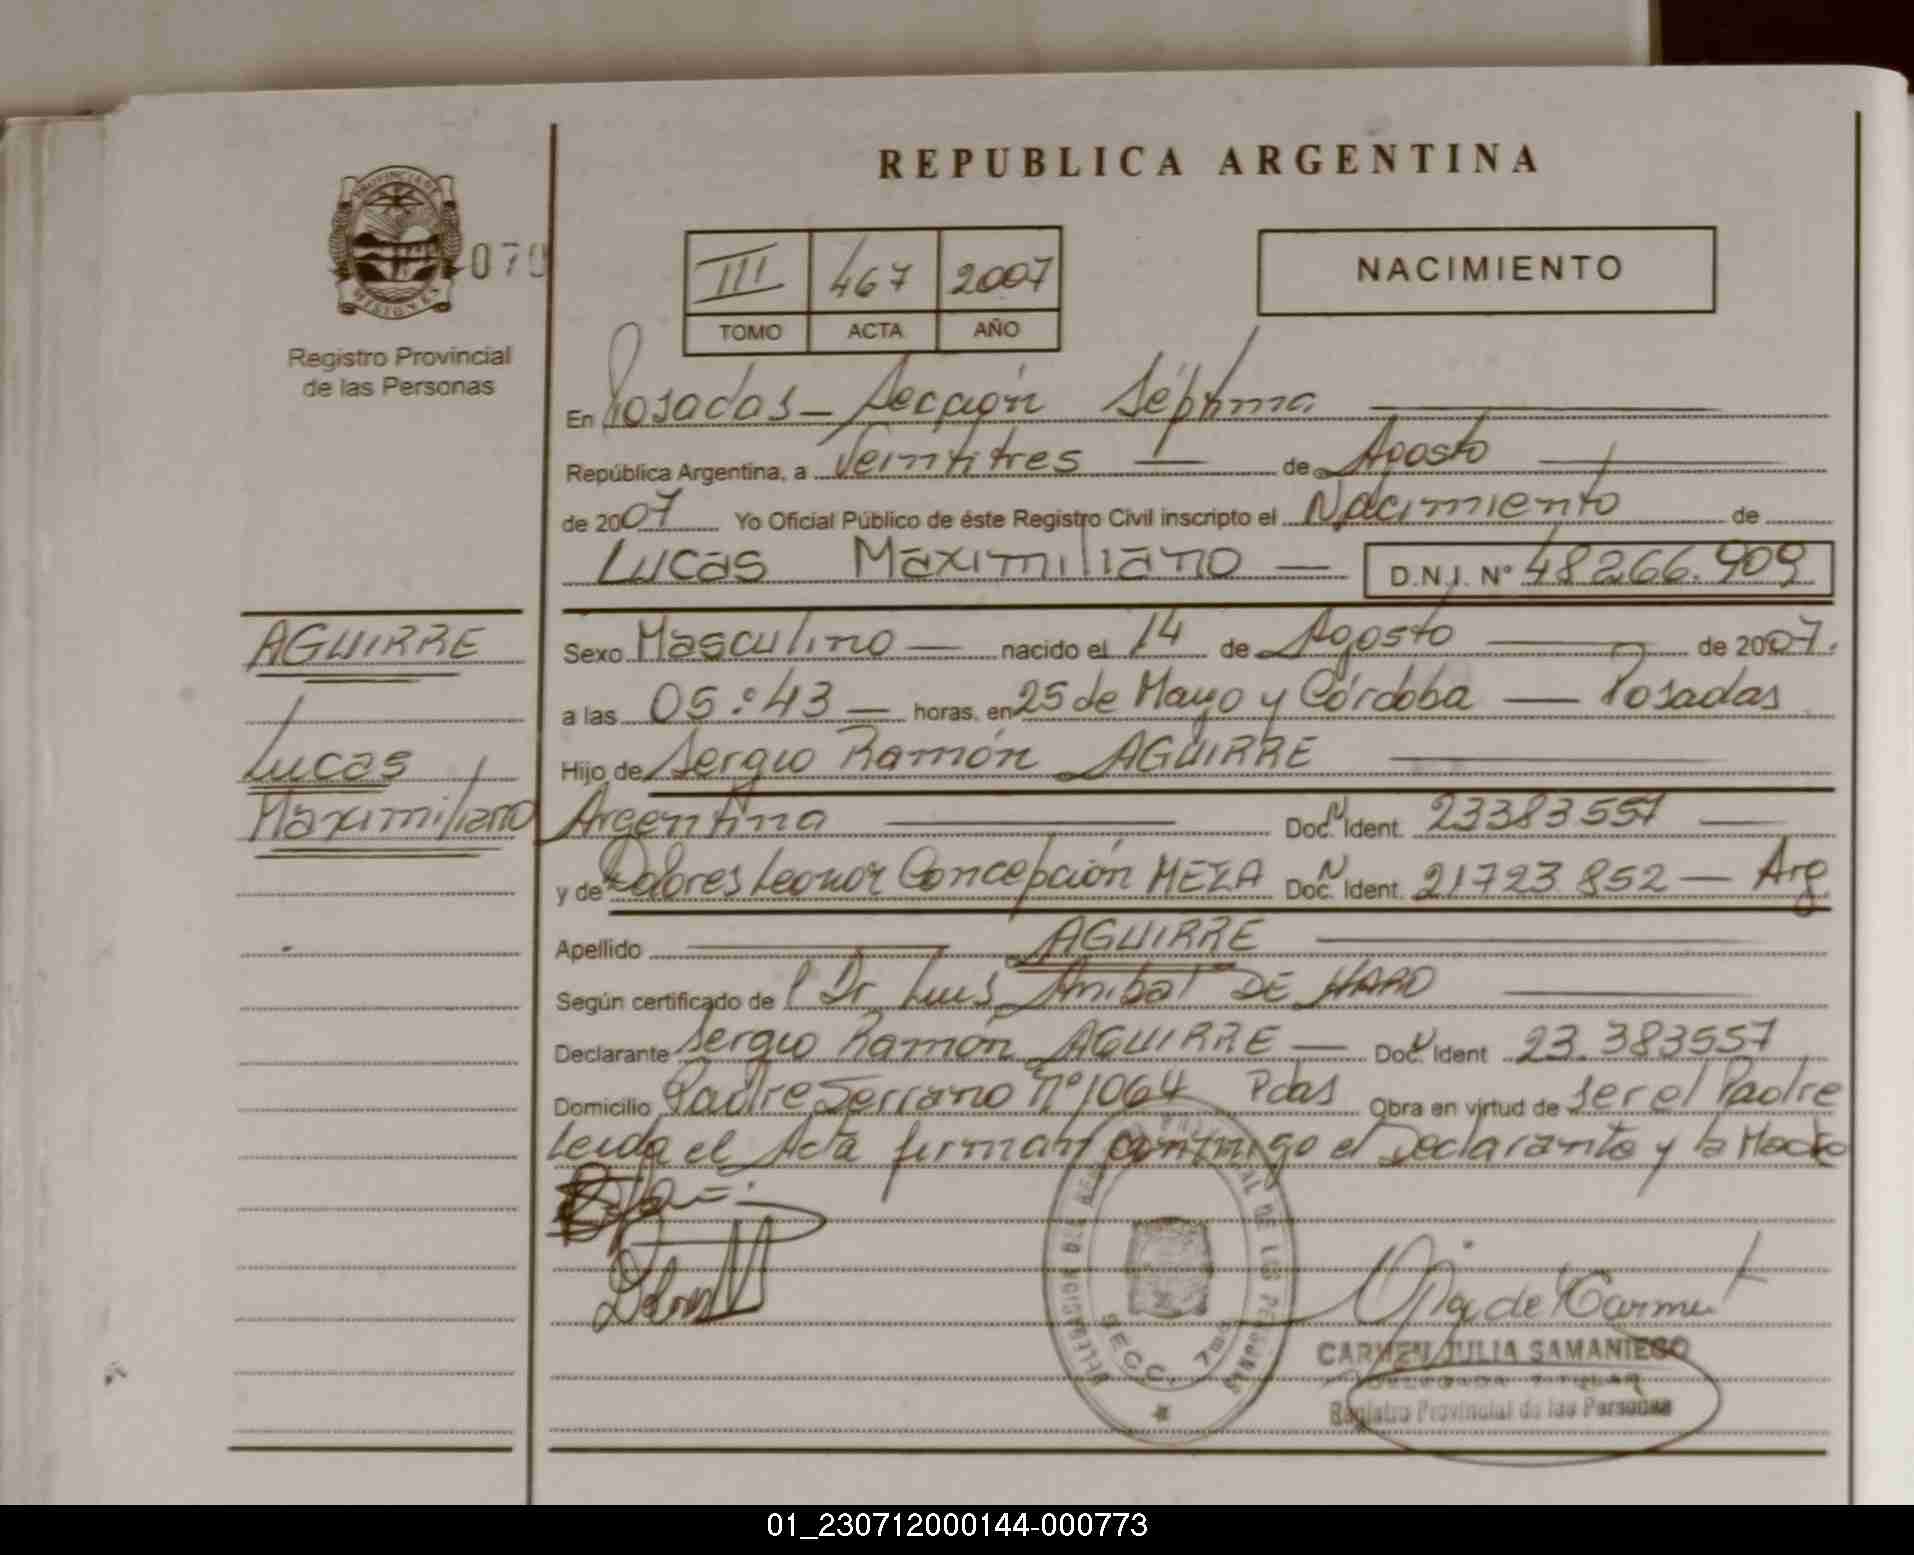 REPUBLICA ARGENTINA
PROVINCIA DE
MISIONES
070
Registro Provincial
de las Personas
III 467 2007
TOMO ACTA AÑO
NACIMIENTO
En Posadas - Sección Séptima
República Argentina, a Veintitres de Agosto
de 2007 Yo Oficial Público de éste Registro Civil inscripto el Nacimiento de
Lucas Maximiliano D.N.I. Nº 48266.909
AGUIRRE
Lucas
Maximiliano
Sexo Masculino nacido el 14 de Agosto de 2007.
a las 05:43 horas, en 25 de Mayo y Córdoba Posadas
Hijo de Sergio Ramón AGUIRRE
Argentina Doc. N Ident. 23383557
y de Dolores Leonor Concepción MEZA Doc. N Ident. 21723852 - Arg
Apellido AGUIRRE
Según certificado de l Dr Luis Anibal DE HARO
Declarante Sergio Ramón AGUIRRE Doc. N Ident 23.383557
Domicilio Padre Serrano nº 1064 Pdas Obra en virtud de ser el Padre
Leida el Acta firman conmigo el Declarante y la Madre
SECC. 7ma
CARMEN JULIA SAMANIEGO
DELEGADA TITULAR
Registro Provincial de las Personas
01_230712000144-000773